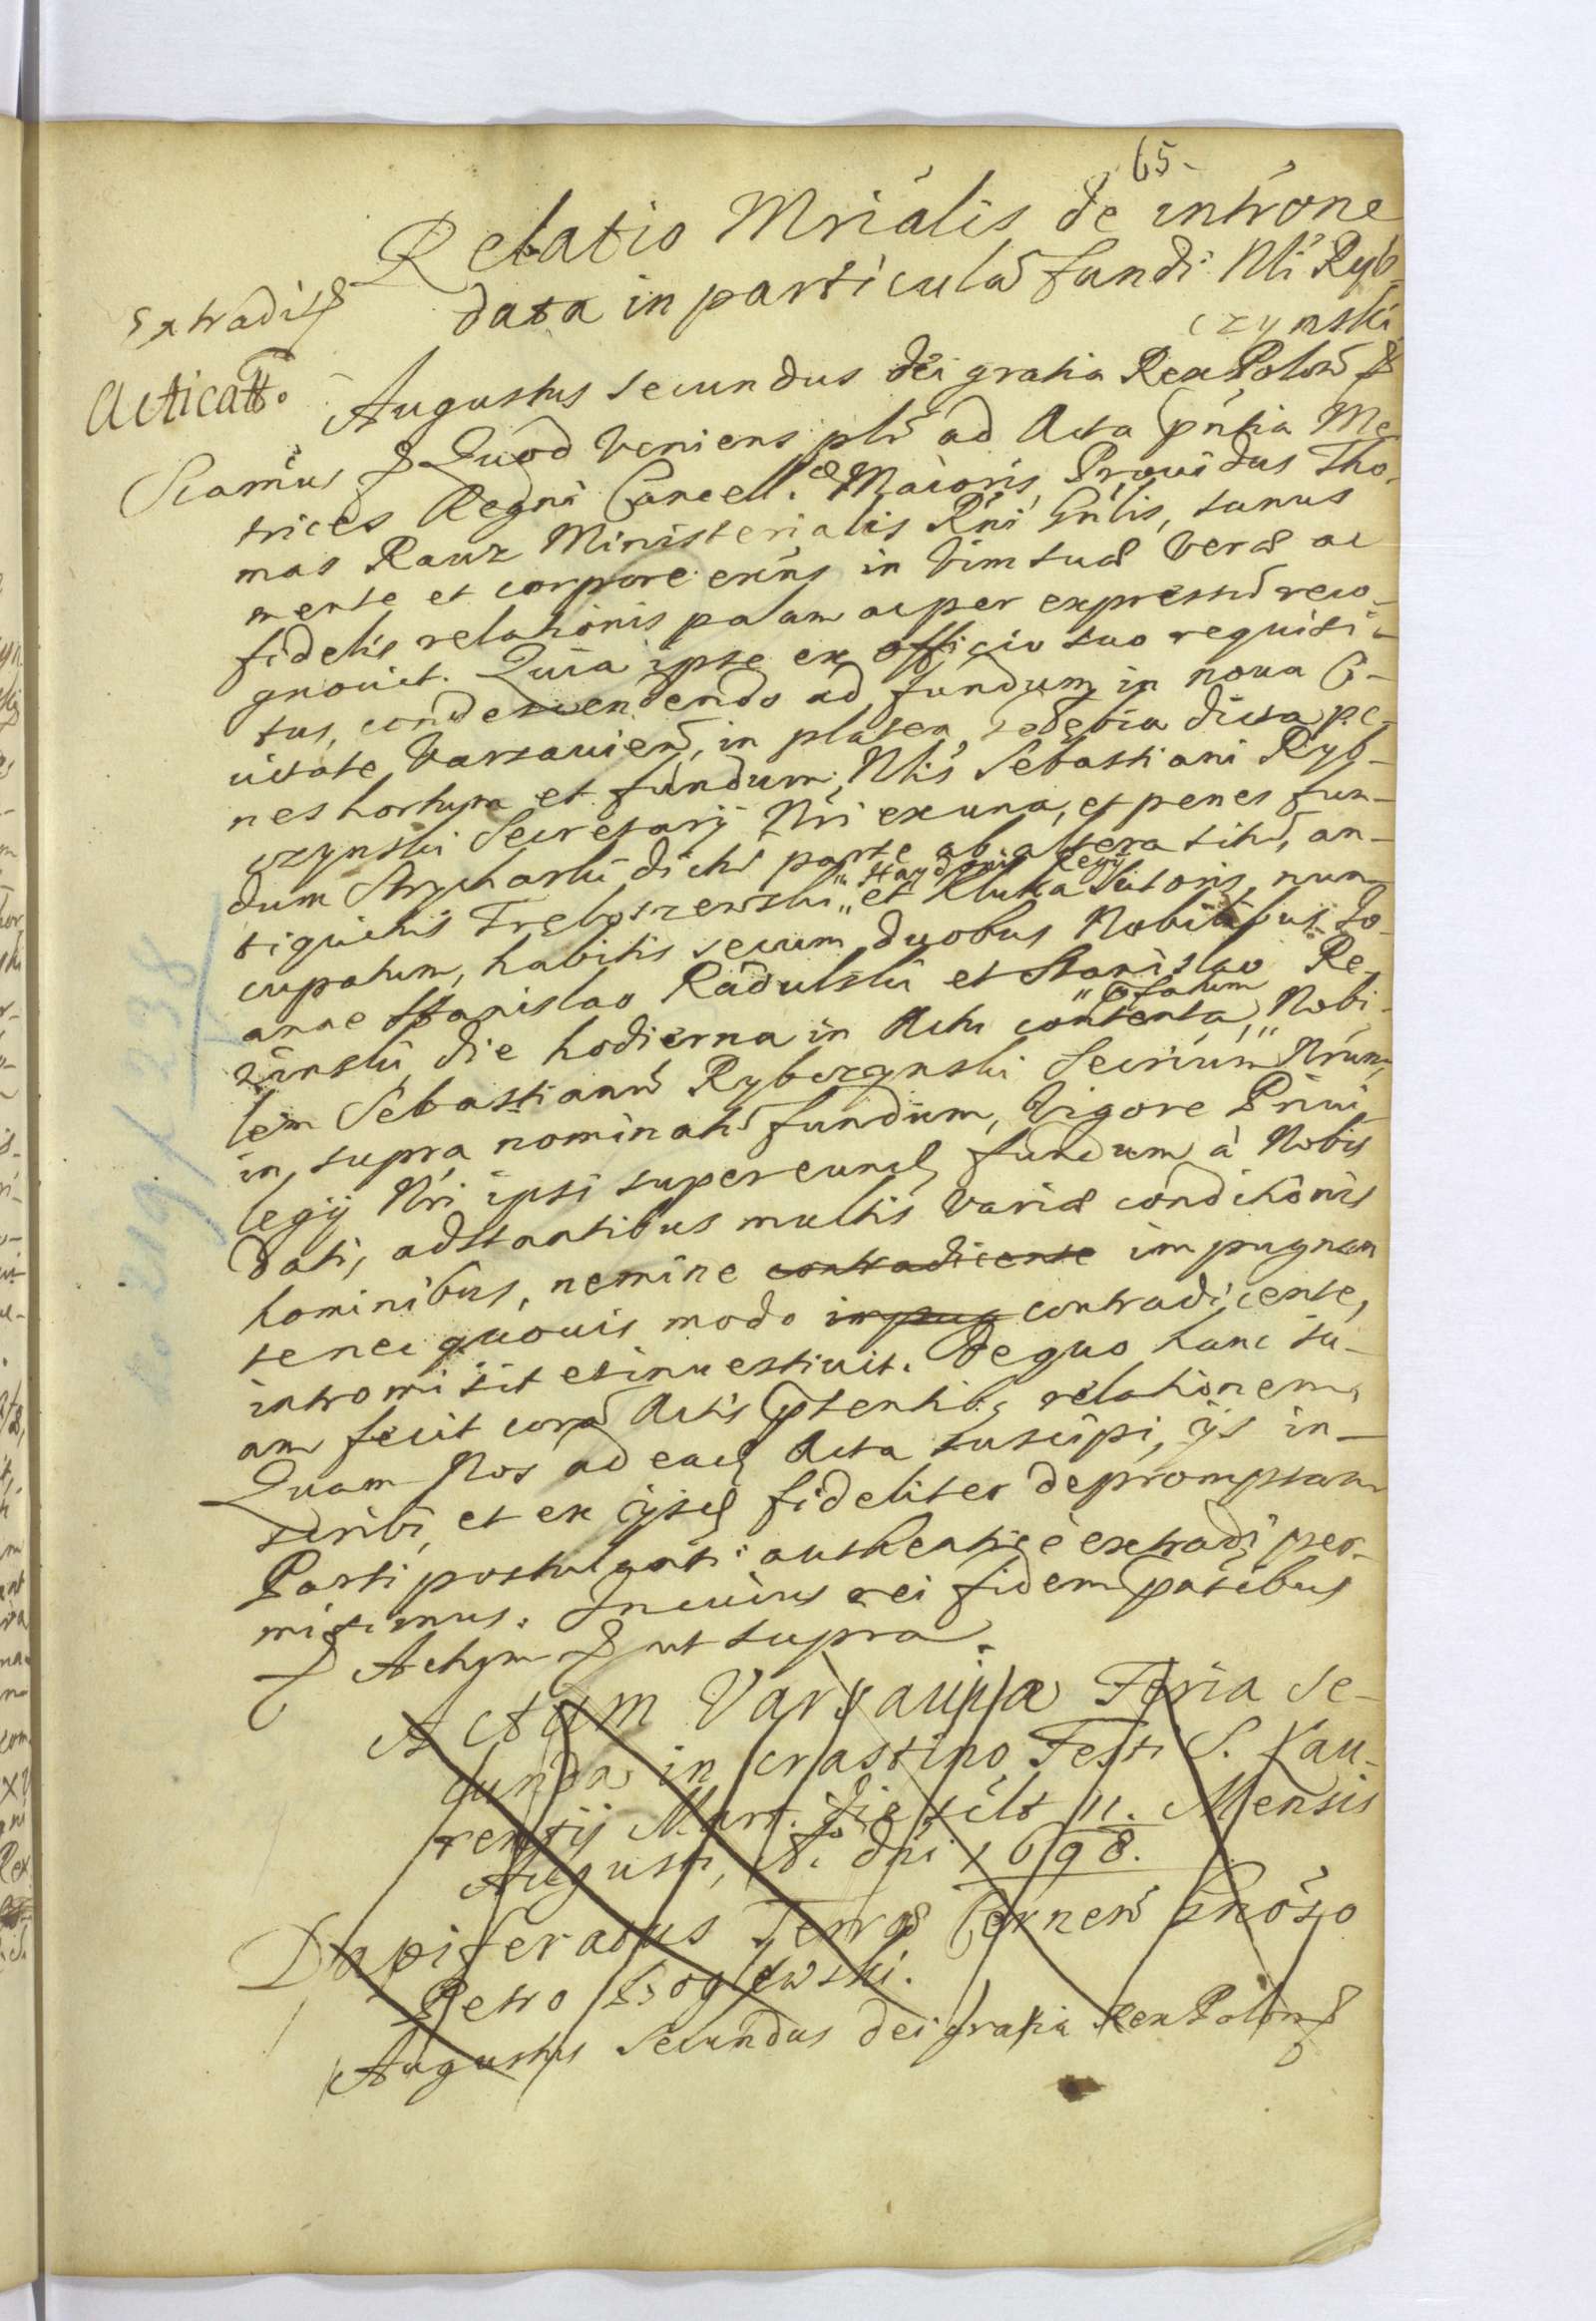 65.
Relatio Mriãlis de intrõne
data in particulã fundi Nli Ryb-
czynski
Extradit
Acticatt.
Augustus Secundus dei gratia Rex Polon
Sũamus Quod veniens plr ad Acta pñtia Me-
trices Regni Cancell. Maioris Providus Tho-
mas Rauz Ministerialis Rni Gnlis, sanus
mente et corpore exñs in vim suæ veræ ac
fidelis relationis palam ac per expressũ reco-
gnovit. Quia ipse ex officio suo requisi-
tus, condescendendo ad fundum in nova Ci-
vitate Varsavien, in platea dicta pe-
nes hortum et fundum, Nlis Sebastiani Ryb-
czynski Secretarij Nri ex una, et penes fun-
dum Strycharski dictũ parte ab altera sitũ, an-
tiquitus Treboszewski „ Haydoni Regij et Kluka Sutoris, nunc
cupatum, habitis secum duobus Nobilibus Jo-
anne Stanislao Radulski et Stanislao Re-
zinski, die hodierna in Actu contenta, „ pfatum „ Nobi-
lem Sebastianũ Rybczynski Secrium Nrum,
in supra nominatũ fundum, vigore Privi-
legij Nri ipsi super eund fundum à Nobis
dati, adstantibus multis variæ conditionis
hominibus, nemine contradicente impugnan
tenec quovis modo impug contradicente,
intromisit et investivit. De quo hanc su-
am fecit corã Actis psentibs relationem.
Quam Nos ad ead Acta suscipi, ijs in-
scribi, et ex ijsd fideliter depromptam
Parti postulanti authenticè extradi per-
misimus. In cuius rei fidem pntibus
Actum ut supra.
Actum Varsaviæ Feria Se-
cunda in crastino Festi S. Lau-
rentij Mart. die scilt 11. Mensis
Augusti, Ao dni 1698.
Dapiferatus Terræ Cernen Gnõso
Petro Boglewski.
Augustus Secundus dei gratia Rex Polon